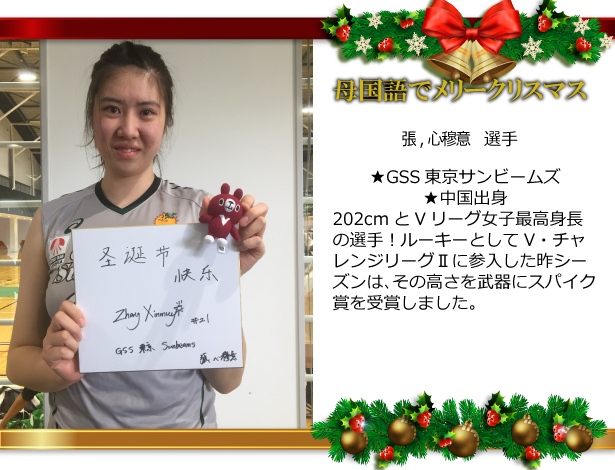 母国語でメリークリスマス
張 , 心穆意　選手
★GSS 東京サンビームズ
★中国出身
202cm と V リーグ女子最高身長
の選手！ルーキーとして V・チャ
レンジリーグⅡに参入した昨シー
ズンは、その高さを武器にスパイク
賞を受賞しました。
圣诞节
快乐
#21
GSS 東京 Sunbeams
V